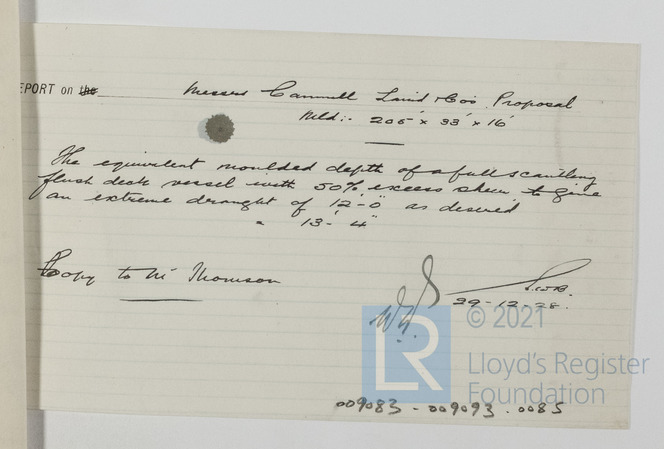 REPORT on the
Messrs Cammell Laird & Co's Proposal
Mld:- 205' x 33' x 16'
The equivalent moulded depth of a full scantling
flush deck vessel with 50% excess sheer to give
an extreme draught of 12'-0" as desired
" 13'-4"
Copy to Mr Thomson
29-12-28.
© 2021
LR
Lloyd's Register
Foundation
009083-009093-0085